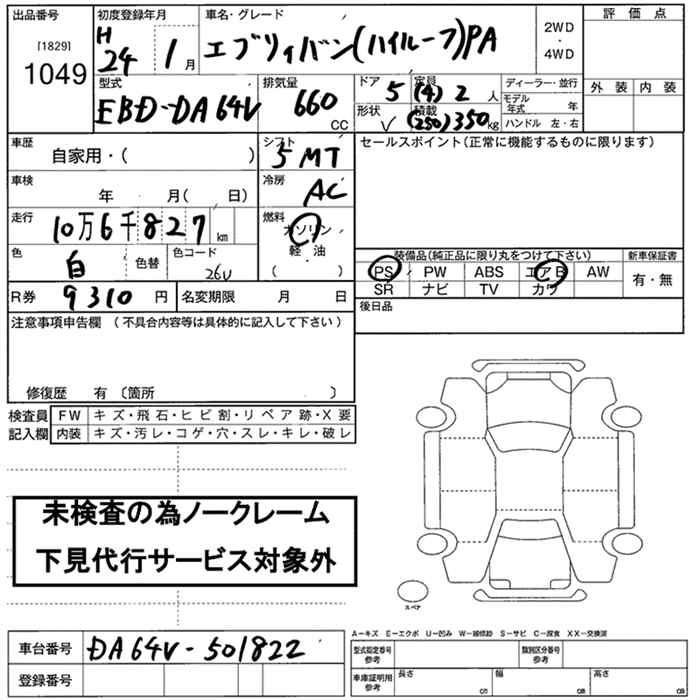 出品番号 初度登録年月 車名・グレード 評価点
[1829] 1049 H 24 1月 エブリィバン(ハイルーフ)PA 2WD・4WD
型式 排気量 ドア 定員 ディーラー・並行 外装 内装
EBD-DA64V 660 CC 5 (4) 2 人 モデル年式 年
形状 V 積載 (250)350kg ハンドル 左・右
車歴 シフト セールスポイント(正常に機能するものに限ります)
自家用・( ) 5MT
車検 冷房
年 月( 日) AC
走行 10万6千827 km 燃料 ガソリン
軽・油
( )
色 白 色替 色コード 26V
装備品(純正品に限り丸をつけて下さい) 新車保証書
PS PW ABS エアB AW 有・無
SR ナビ TV カワ
R券 9310 円 名変期限 月 日
後日品
注意事項申告欄 (不具合内容等は具体的に記入して下さい)
修復歴 有 〔箇所 〕
検査員 FW キズ・飛石・ヒビ割・リペア跡・X要
記入欄 内装 キズ・汚レ・コゲ・穴・スレ・キレ・破レ
未検査の為ノークレーム
下見代行サービス対象外
スペア
A－キズ E－エクボ U－凹み W－補修跡 S－サビ C－腐食 XX－交換済
車台番号 DA64V-501822
登録番号
型式指定番号 参考 類別区分番号 参考
車庫証明用 参考 長さ cm 幅 cm 高さ cm